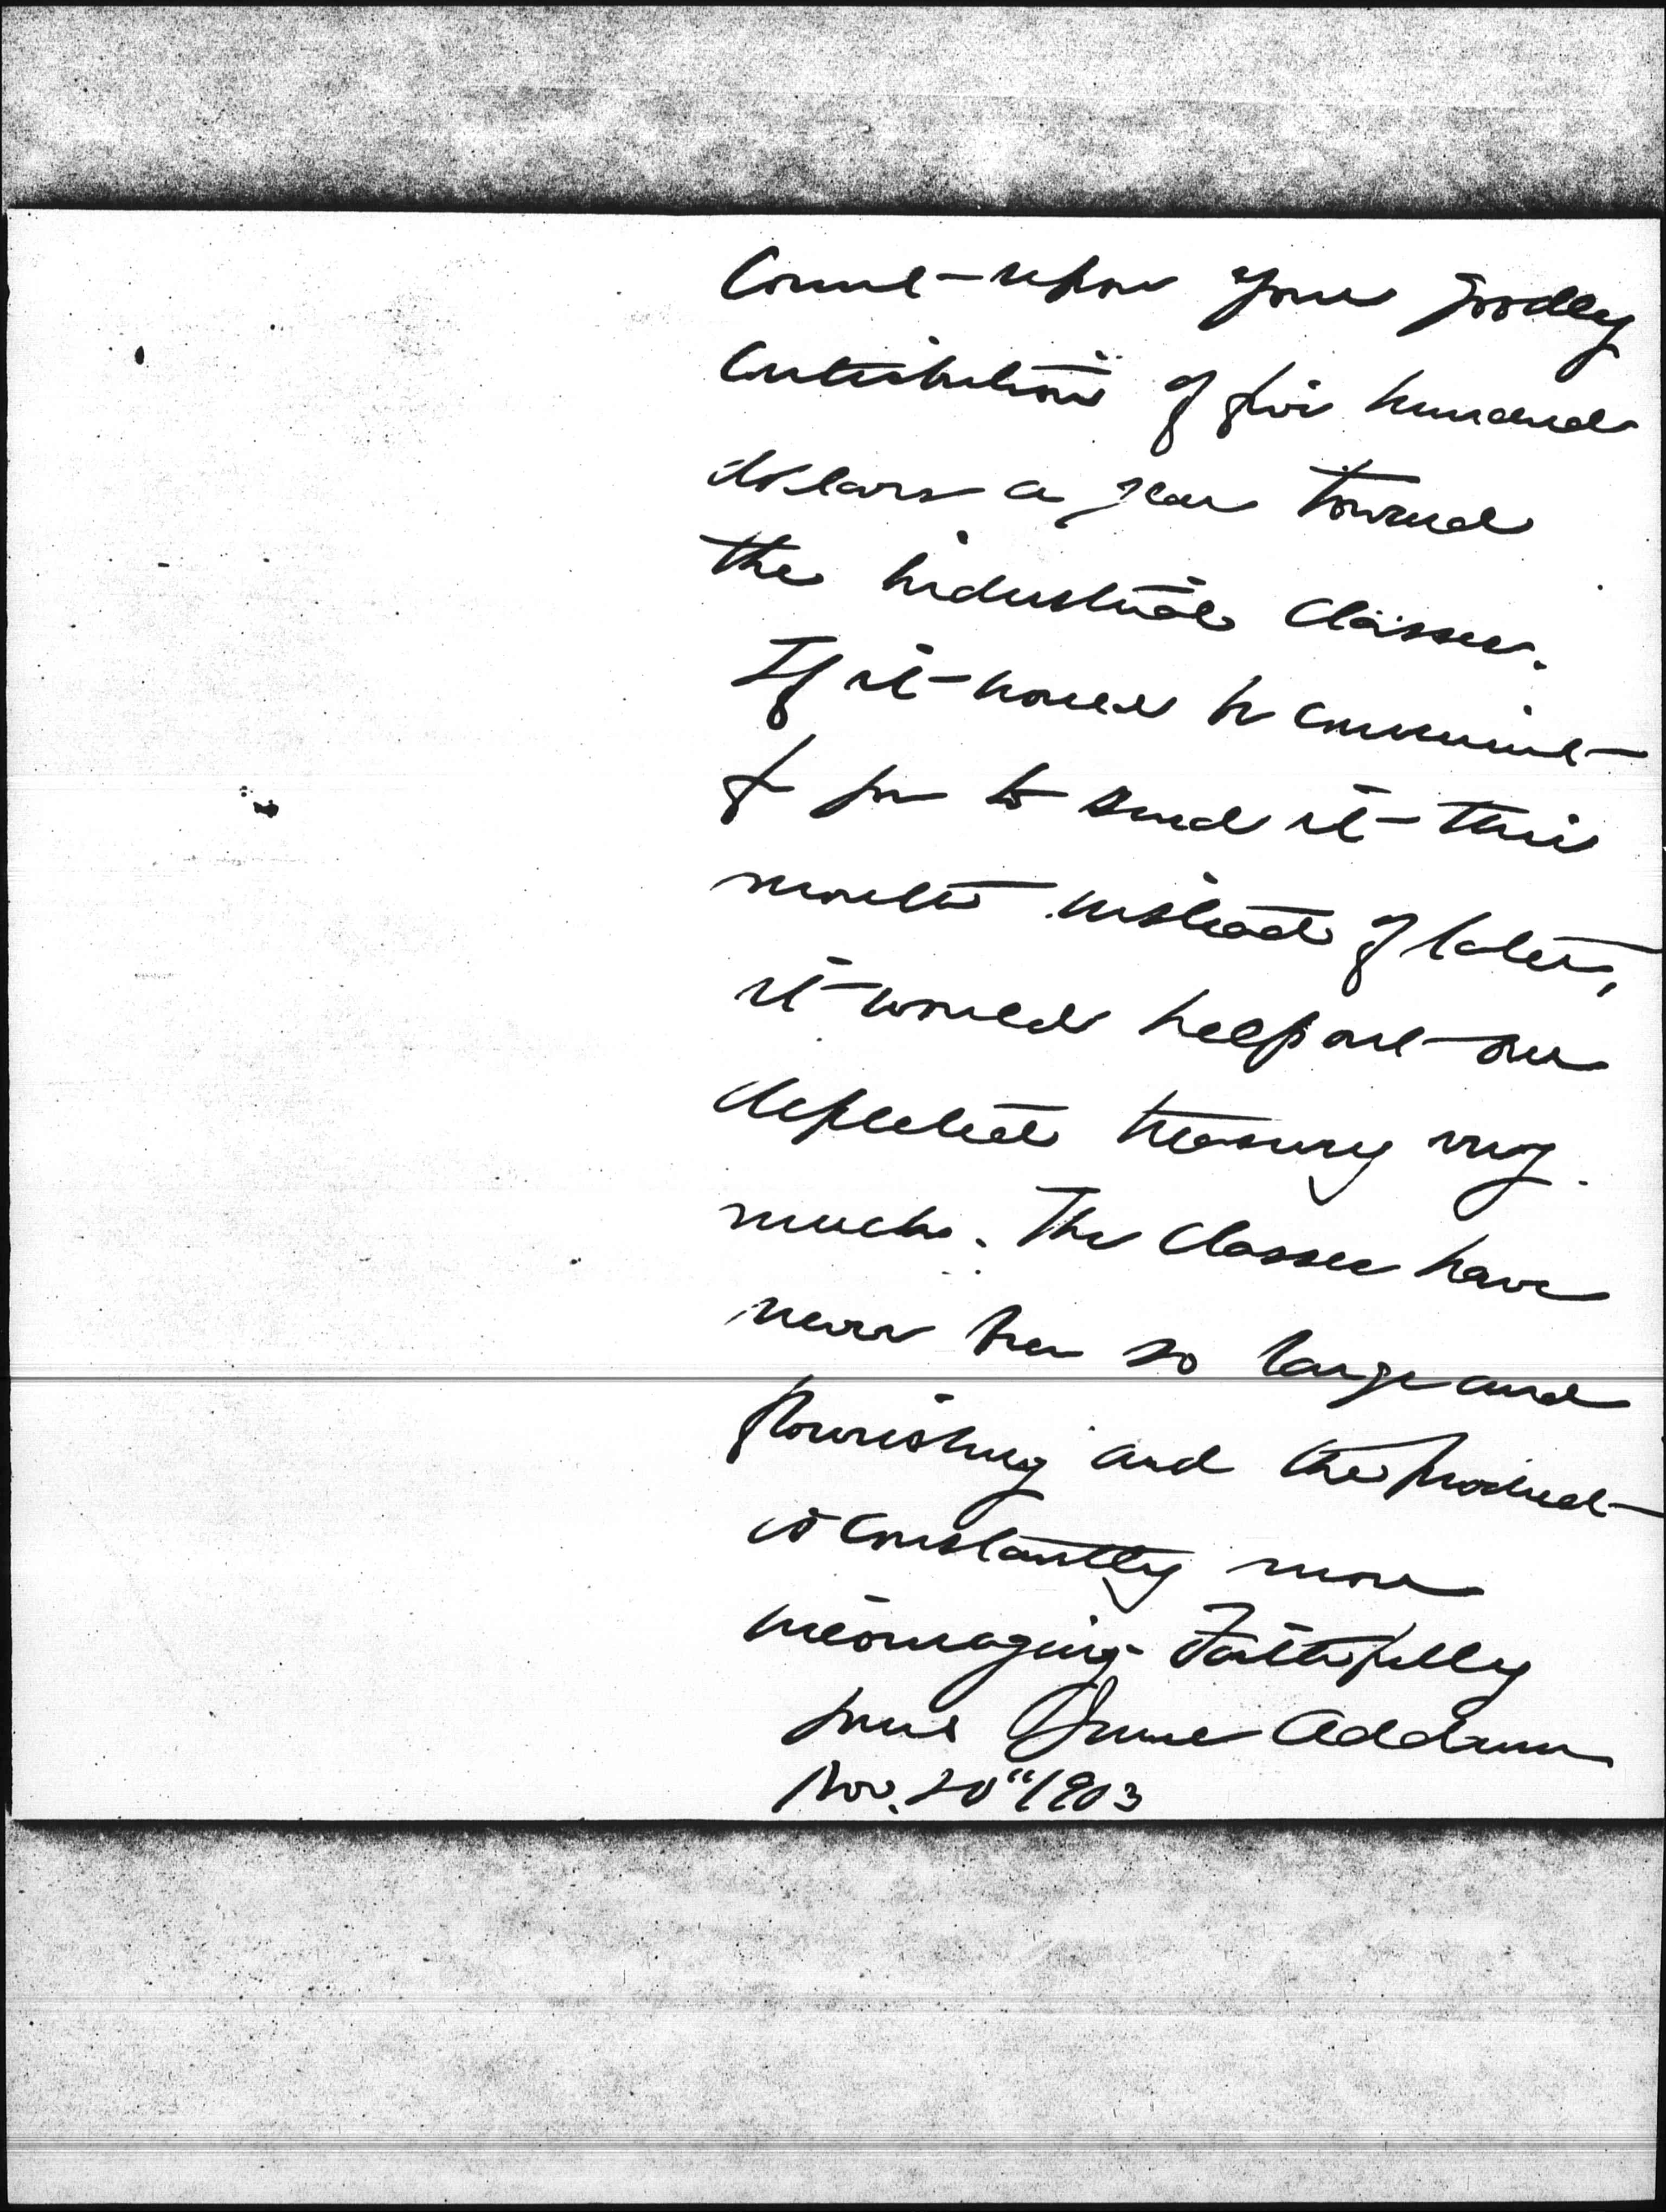 count upon your goodly
contribution of five hundred
dollars a year toward
the industrial classes.
If it would be convenient
for you to send it this
month instead of later,
it would help out our
depleted treasury very
much. The classes have
never been so large and
flourishing and the product
is constantly more
encouraging. Faithfully
yours Jane Addams
Nov. 20" 1903